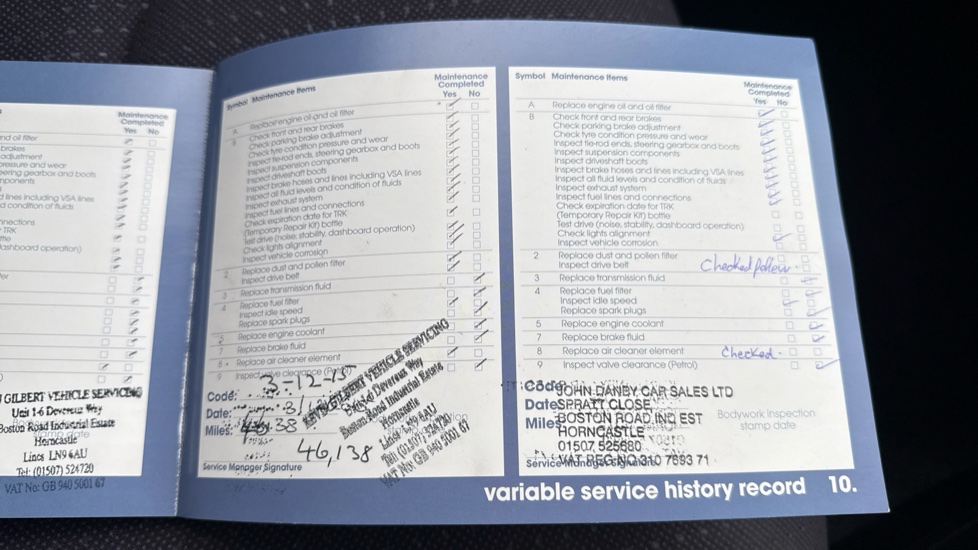 Maintenance
Completed
Yes No
nd oil filter
brakes
adjustment
pressure and wear
eering gearbox and boots
mponents
d lines including VSA lines
nd condition of fluids
nnections
r TRK
ttle
dashboard operation)
GILBERT VEHICLE SERVICING
Unit 1-6 Devereux Way
Boston Road Industrial Estate
Horncastle
Lincs LN9 6AU
Tel: (01507) 524720
VAT No: GB 940 5001 67
Symbol Maintenance Items
Maintenance
Completed
Yes No
A Replace engine oil and oil filter
Check front and rear brakes
Check parking brake adjustment
Check tyre condition pressure and wear
Inspect tie-rod ends, steering gearbox and boots
Inspect suspension components
Inspect driveshaft boots
Inspect brake hoses and lines including VSA lines
Inspect all fluid levels and condition of fluids
Inspect exhaust system
Inspect fuel lines and connections
Check expiration date for TRK
(Temporary Repair Kit) bottle
Test drive (noise, stability, dashboard operation)
Check lights alignment
Inspect vehicle corrosion
2 Replace dust and pollen filter
Inspect drive belt
3 Replace transmission fluid
4 Replace fuel filter
Inspect idle speed
Replace spark plugs
Replace engine coolant
7 Replace brake fluid
8 Replace air cleaner element
9 Inspect valve clearance (Petrol)
Code:
Date:
Miles:
46,138
GILBERT VEHICLE SERVICING
Devereux Way
Boston Road Industrial Estate
Horncastle
Lincs LN9 6AU
Tel: (01507) 524720
VAT No: GB 940 5001 67
Service Manager Signature
Symbol Maintenance Items
Maintenance
Completed
Yes No
A Replace engine oil and oil filter
B Check front and rear brakes
Check parking brake adjustment
Check tyre condition pressure and wear
Inspect tie-rod ends, steering gearbox and boots
Inspect suspension components
Inspect driveshaft boots
Inspect brake hoses and lines including VSA lines
Inspect all fluid levels and condition of fluids
Inspect exhaust system
Inspect fuel lines and connections
Check expiration date for TRK
(Temporary Repair Kit) bottle
Test drive (noise, stability, dashboard operation)
Check lights alignment
Inspect vehicle corrosion
2 Replace dust and pollen filter
Inspect drive belt Checked pollen -
3 Replace transmission fluid
4 Replace fuel filter
Inspect idle speed
Replace spark plugs
5 Replace engine coolant
7 Replace brake fluid
8 Replace air cleaner element Checked -
9 Inspect valve clearance (Petrol)
Code:
Date:
Miles:
JOHN DANBY CAR SALES LTD
SPRATT CLOSE
BOSTON ROAD IND EST
HORNCASTLE
01507 525680
VAT REG NO 310 7693 71
Bodywork inspection
stamp date
Service Manager Signature
variable service history record 10.